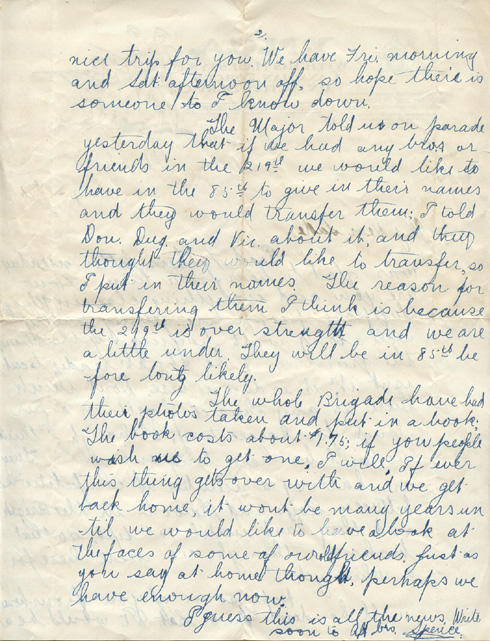 2.
nice trip for you. We have Fri. morning
and Sat afternoon off, so hope there is
someone to I know down.
The Major told us on parade
yesterday that if we had any bros or
friends in the 219th we would like to
have in the 85th to give in their names
and they would transfer them; I told
Don. Dug. and Vic about it, and they
thought they would like to transfer, so
I put in their names. The reason for
transfering them I think is because
the 219th is over strength and we are
a little under. They will be in 85th be
fore long likely.
The whole Brigade have had
their photos taken and put in a book.
The book costs about $1.75; if you people
wish me to get one, I will. If ever
this thing gets over with and we get
back home, it wont be many years un
til we would like to have a look at
the faces of some of our friends. Just as
you say at home though, perhaps we
have enough now.
I guess this is all the news. Write
soon to bro.